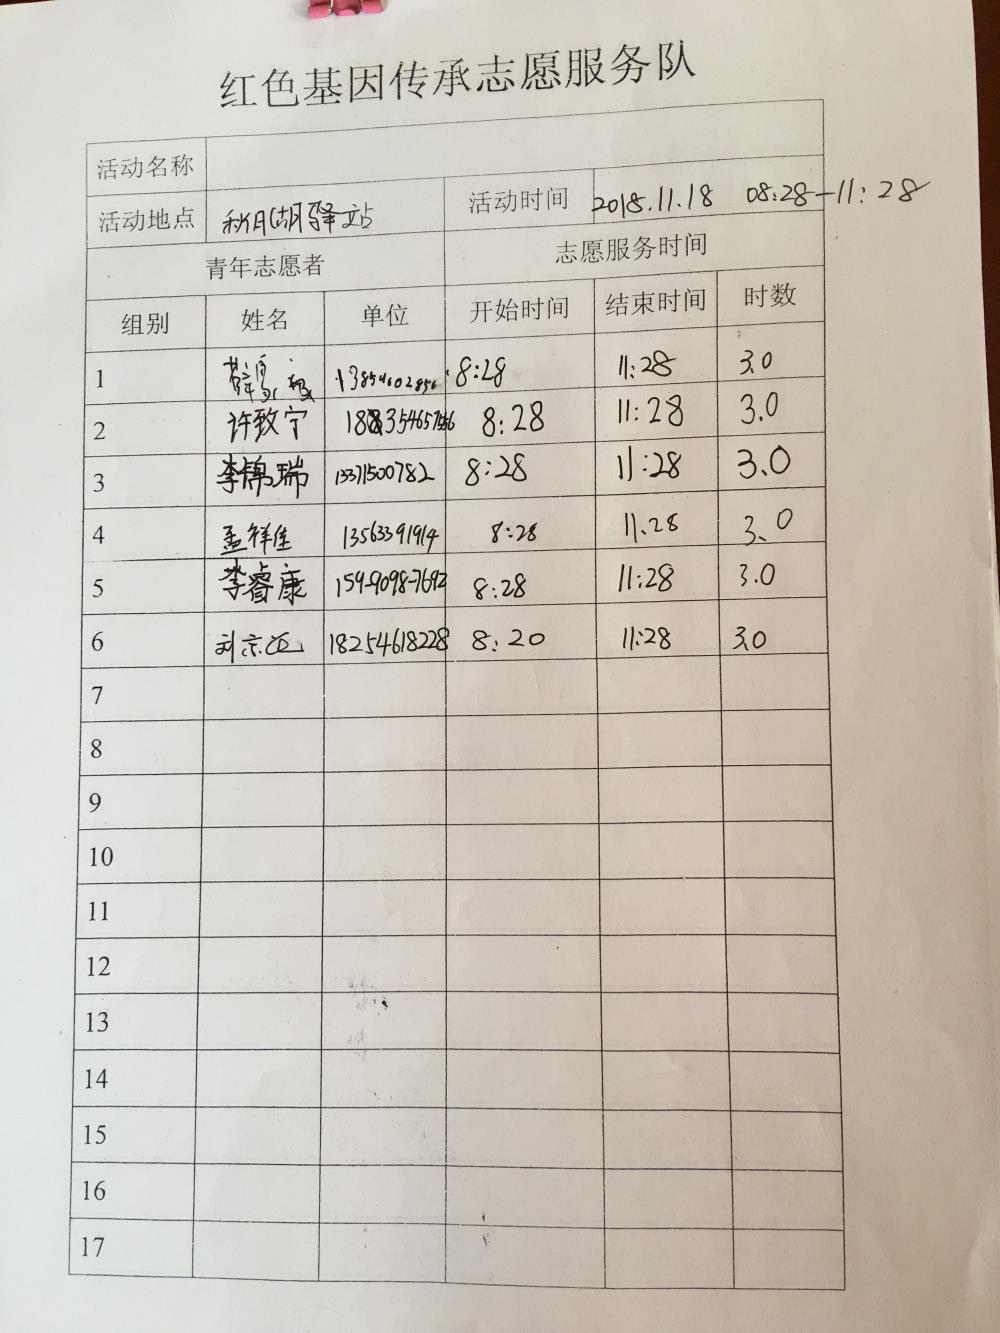 红色基因传承志愿服务队
活动名称
活动地点 秋月湖驿站 活动时间 2018.11.18 08:28-11:28
青年志愿者 志愿服务时间
组别 姓名 单位 开始时间 结束时间 时数
1 13854602856 8:28 11:28 3.0
2 许致宁 8:28 11:28 3.0
3 李锦瑞 13371500782 8:28 11:28 3.0
4 孟祥佳 13563391914 8:28 11:28 3.0
5 李睿康 159-9098-7692 8:28 11:28 3.0
6 刘京 18254618228 8:20 11:28 3.0
7
8
9
10
11
12
13
14
15
16
17